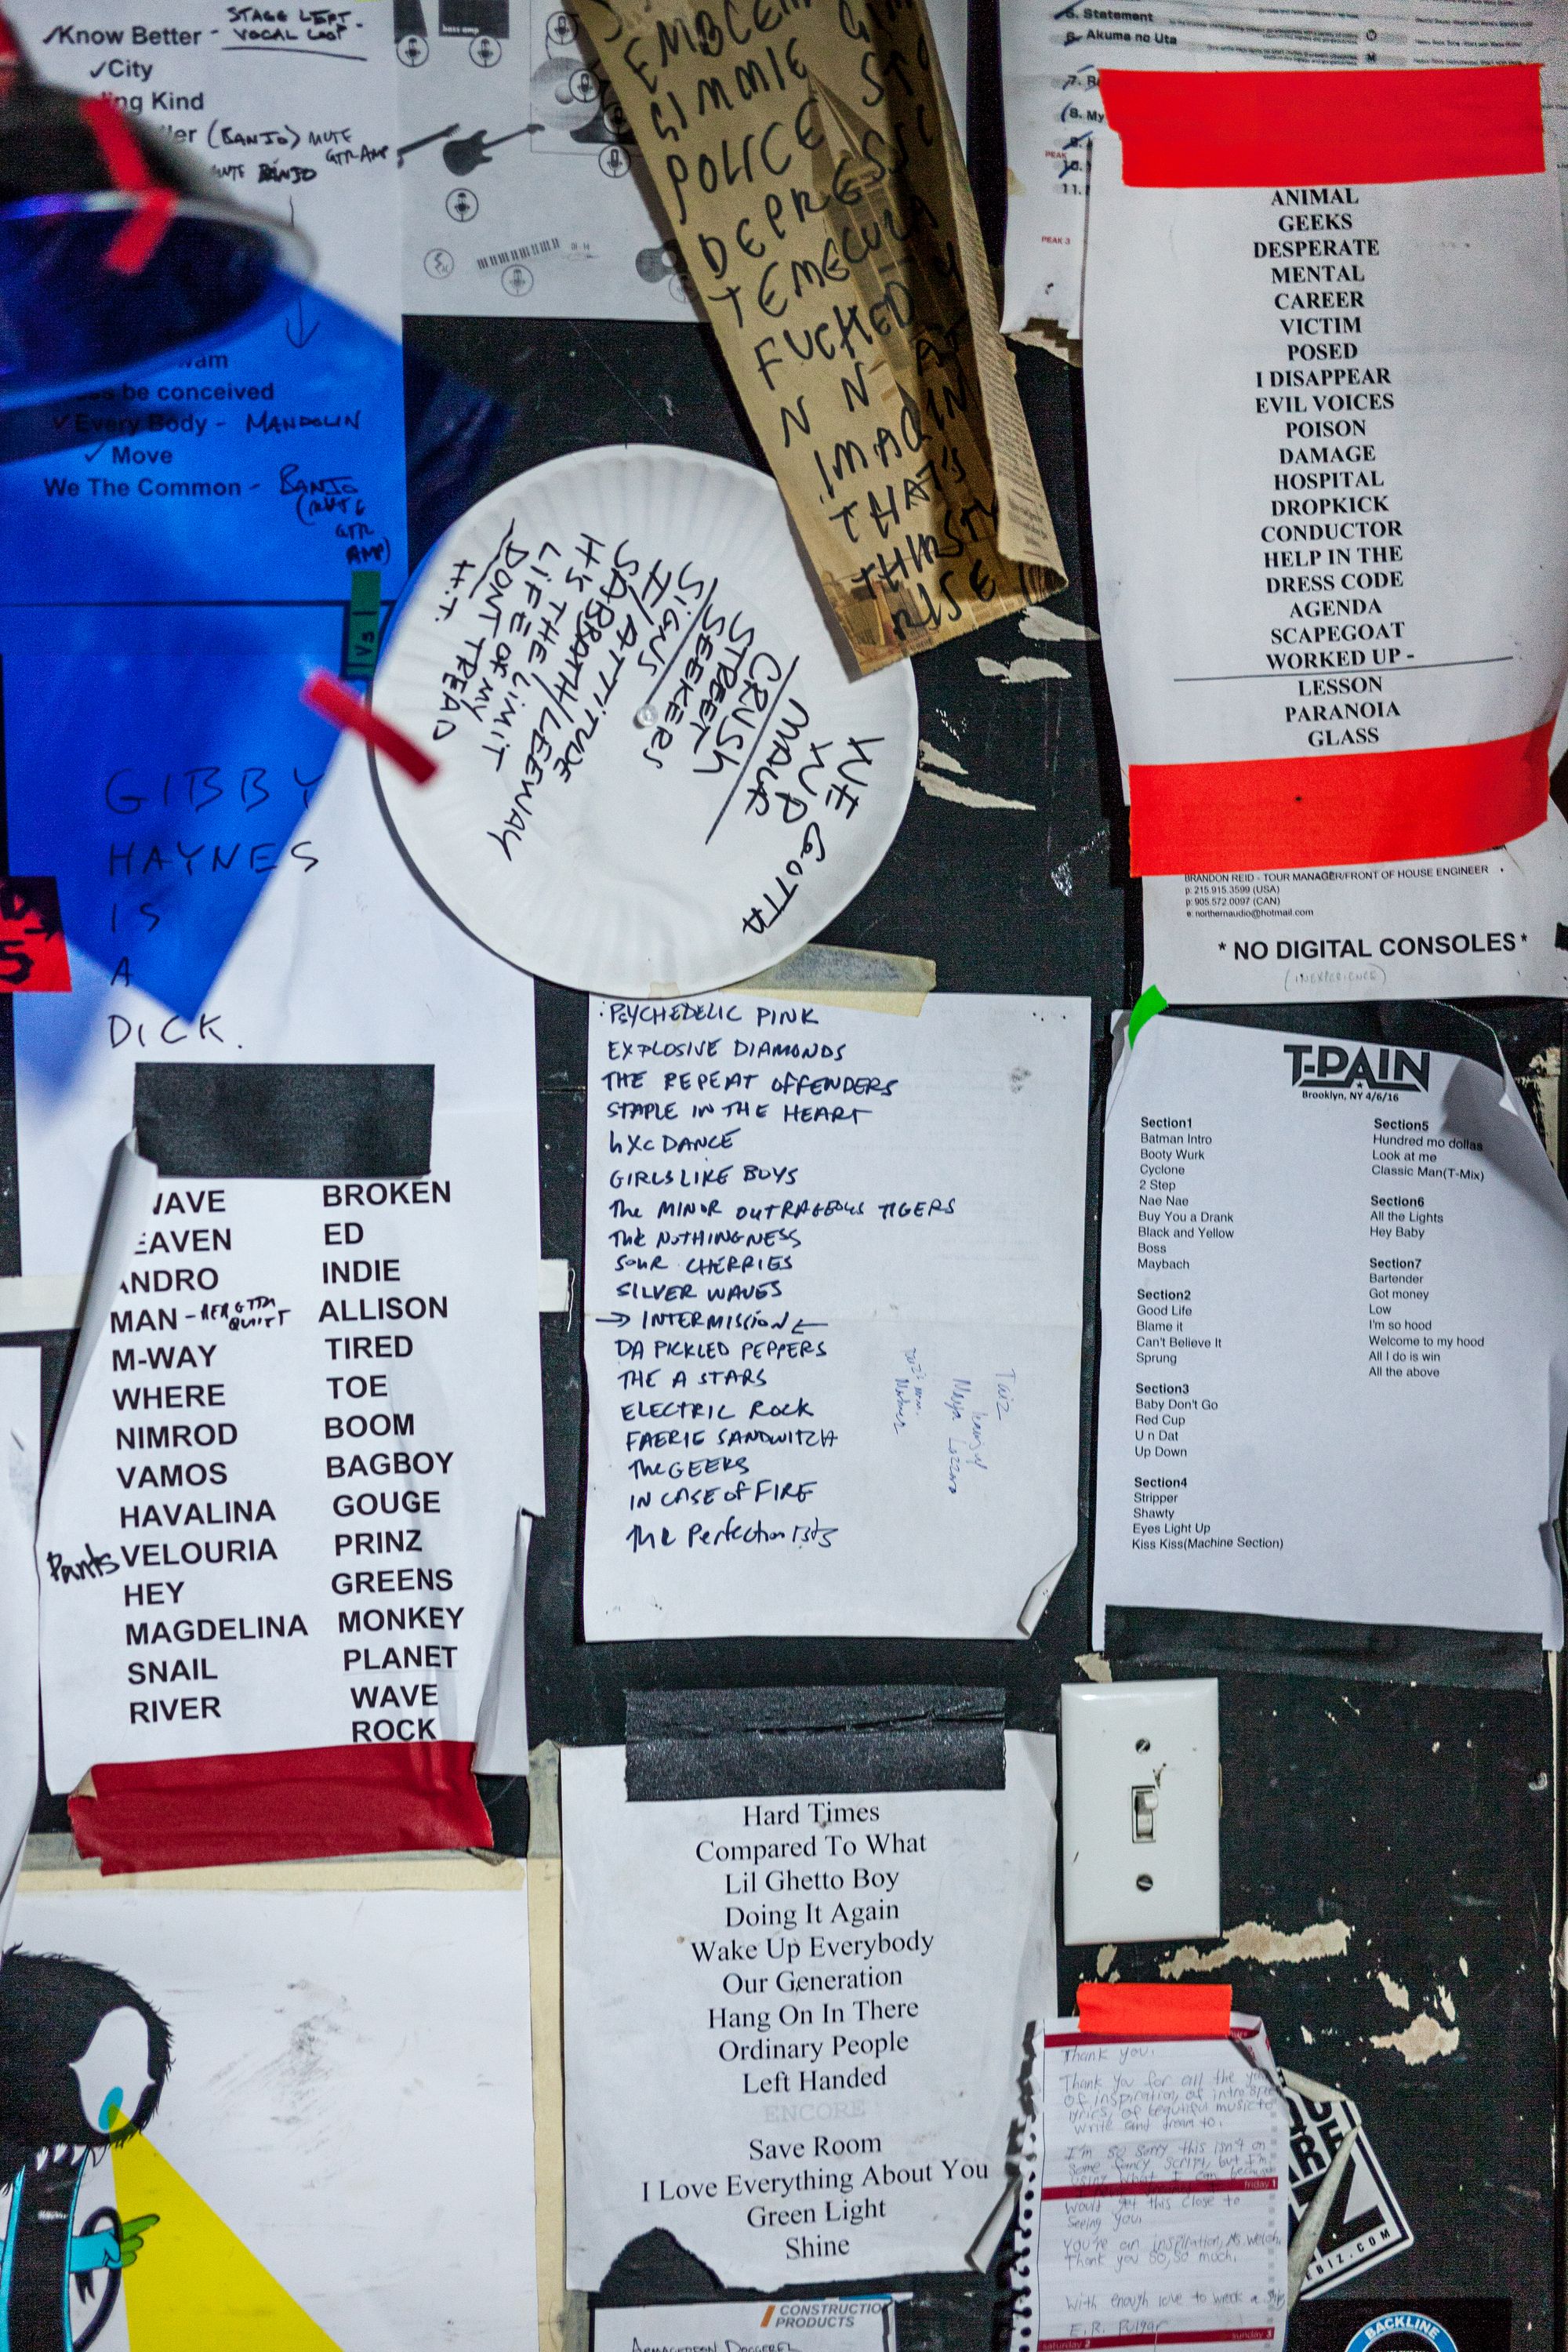 Know Better - STAGE LEFT -
VOCAL LOOP
City
Kind
(BANJO) MUTE
GTR AMP
BANJO
be conceived
Every Body - MANDOLIN
Move
We The Common - BANJO
(MUTE
GTR
AMP)
VS
bass amp
GIMMIE
POLICE STO
DEPRESSIO
TEMECULA
FUCKED
N N
IMAGIN
THAT'S
THIRSTY
RISE
5. Statement
6. Akuma no Uta
7.
8. My
9.
10.
11.
PEAK
PEAK 3
ANIMAL
GEEKS
DESPERATE
MENTAL
CAREER
VICTIM
POSED
I DISAPPEAR
EVIL VOICES
POISON
DAMAGE
HOSPITAL
DROPKICK
CONDUCTOR
HELP IN THE
DRESS CODE
AGENDA
SCAPEGOAT
WORKED UP -
LESSON
PARANOIA
GLASS
BRANDON REID - TOUR MANAGER/FRONT OF HOUSE ENGINEER
p: 215.915.3599 (USA)
p: 905.572.0097 (CAN)
e: northernaudio@hotmail.com
* NO DIGITAL CONSOLES *
(INEXPERIENCE)
WE GOTTA
KNOW
MALR
CRUSH
STREET
SEEKERS
SIGNS
II/ATTITUDE
SABBATH/LEEWAY
H'S THE LIMIT
LIFE OF MY
DONT TREAD
H.T.
GIBBY
HAYNES
IS
A
DICK.
5
WAVE
HEAVEN
ANDRO
MAN
M-WAY
WHERE
NIMROD
VAMOS
HAVALINA
Pants VELOURIA
HEY
MAGDELINA
SNAIL
RIVER
BROKEN
ED
INDIE
ALLISON
TIRED
TOE
BOOM
BAGBOY
GOUGE
PRINZ
GREENS
MONKEY
PLANET
WAVE
ROCK
PSYCHEDELIC PINK
EXPLOSIVE DIAMONDS
THE REPEAT OFFENDERS
STAPLE IN THE HEART
hXc DANCE
GIRLS LIKE BOYS
The MINOR OUTRAGEOUS TIGERS
The NOTHINGNESS
SOUR CHERRIES
SILVER WAVES
→ INTERMISSION ←
DA PICKLED PEPPERS
THE A STARS
ELECTRIC ROCK
FAERIE SANDWITCH
The GEEKS
IN CASE OF FIRE
The Perfectionists
T-PAIN
Brooklyn, NY 4/6/16
Section1
Batman Intro
Booty Wurk
Cyclone
2 Step
Nae Nae
Buy You a Drank
Black and Yellow
Boss
Maybach
Section2
Good Life
Blame it
Can't Believe It
Sprung
Section3
Baby Don't Go
Red Cup
U n Dat
Up Down
Section4
Stripper
Shawty
Eyes Light Up
Kiss Kiss(Machine Section)
Section5
Hundred mo dollas
Look at me
Classic Man(T-Mix)
Section6
All the Lights
Hey Baby
Section7
Bartender
Got money
Low
I'm so hood
Welcome to my hood
All I do is win
All the above
Hard Times
Compared To What
Lil Ghetto Boy
Doing It Again
Wake Up Everybody
Our Generation
Hang On In There
Ordinary People
Left Handed
ENCORE
Save Room
I Love Everything About You
Green Light
Shine
Thank you.
Thank you for all the
of inspiration, of
lyrics, of beautiful music to
write and dream to.
I'm so sorry this isn't on
some fancy script, but I'm
using what I can because
friday 1
would get this close to
seeing you.
You're an inspiration, Ms. Welch.
Thank you so, so much.
With enough love to wreck a ship
E.R. Pulgar
saturday 2
sunday 3
EBIZ.COM
BACKLINE
CONSTRUCTION
PRODUCTS
ARMAGEDDON DOGGEREL